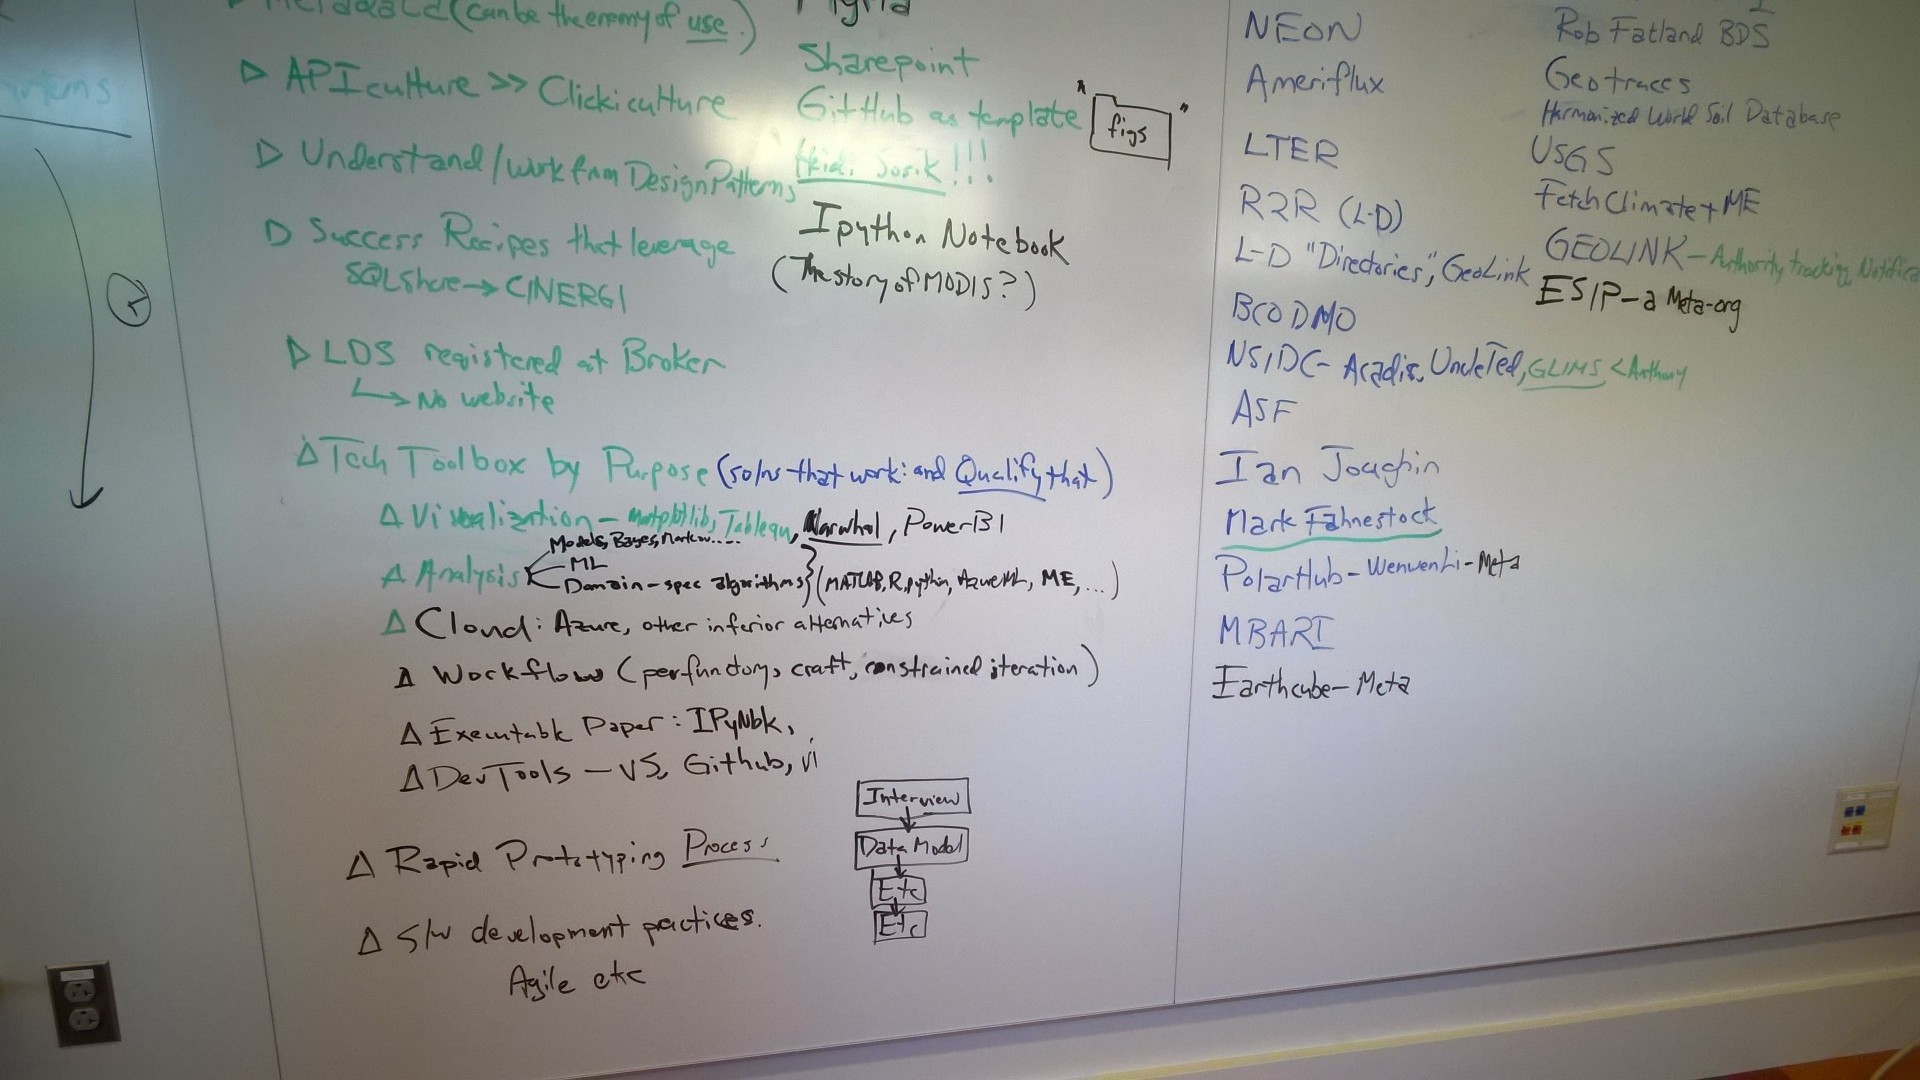 (can be the enemy of use.)
▷ API culture >> Clicki culture
▷ Understand/work from Design Patterns
▷ Success Recipes that leverage
SQLShare → CINERGI
▷ LDS registered at Broker
↳ No website
Δ Tech Toolbox by Purpose (solns that work: and Qualify that)
Δ Visualization – matplotlib, Tableau, Narwhal, PowerBI
Δ Analysis
Models, Bayes, Markov....
ML
Domain-spec algorithms } (MATLAB, R, python, AzureML, ME, ...)
Δ Cloud: Azure, other inferior alternatives
Δ Workflow (perfunctory, craft, constrained iteration)
Δ Executable Paper: IPyNbk,
Δ DevTools – VS, Github, vi
Δ Rapid Prototyping Process
Δ S/W development practices.
Agile etc
Interview
Data Model
Etc
Etc
Sharepoint
GitHub as template
"figs"
Heidi Sosik!!!
Ipython Notebook
(The story of MODIS?)
NEON
Ameriflux
LTER
R2R (L-D)
L-D "Directories", GeoLink
BCODMO
NSIDC - Acadis, UncleTed, GLIMS < Anthony
ASF
Ian Joughin
Mark Fahnestock
PolarHub - WenwenLi - Meta
MBARI
Earthcube - Meta
Rob Fatland BDS
Geotraces
Harmonized World Soil Database
USGS
FetchClimate + ME
GEOLINK – Authority tracking,
ESIP – a Meta-org